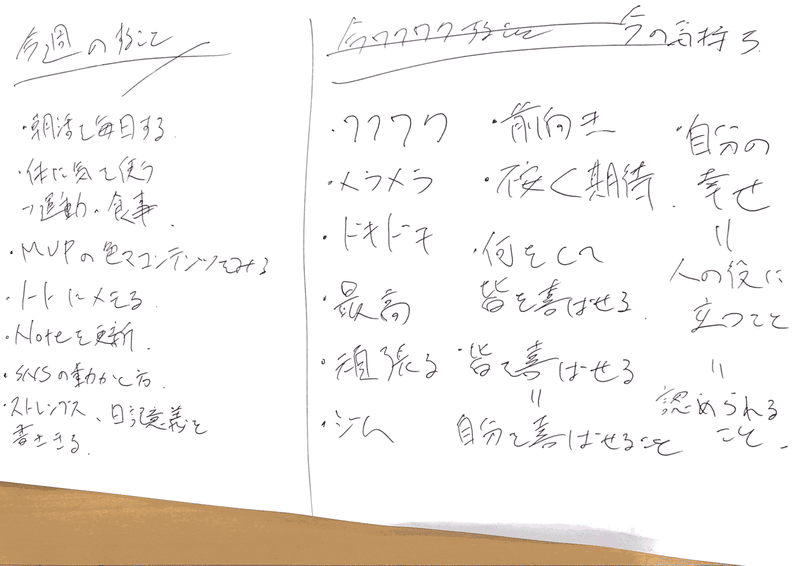 今週のすること
・朝活を毎日する
・体に気を使う
→運動・食事
・MVPの色々コンテンツをみる
・ノートにメモる
・Noteを更新
・SNSの動かし方
・ストレングス、日記意義を
書ききる
今ワクワクすること 今の気持ち
・ワクワク
・メラメラ
・ドキドキ
・最高
・頑張る
・ジム
・前向き
・不安<期待
・何をして
皆を喜ばせる
・皆を喜ばせる
=
自分を喜ばせること
・自分の
幸せ
=
人の役に
立つこと
=
認められる
こと